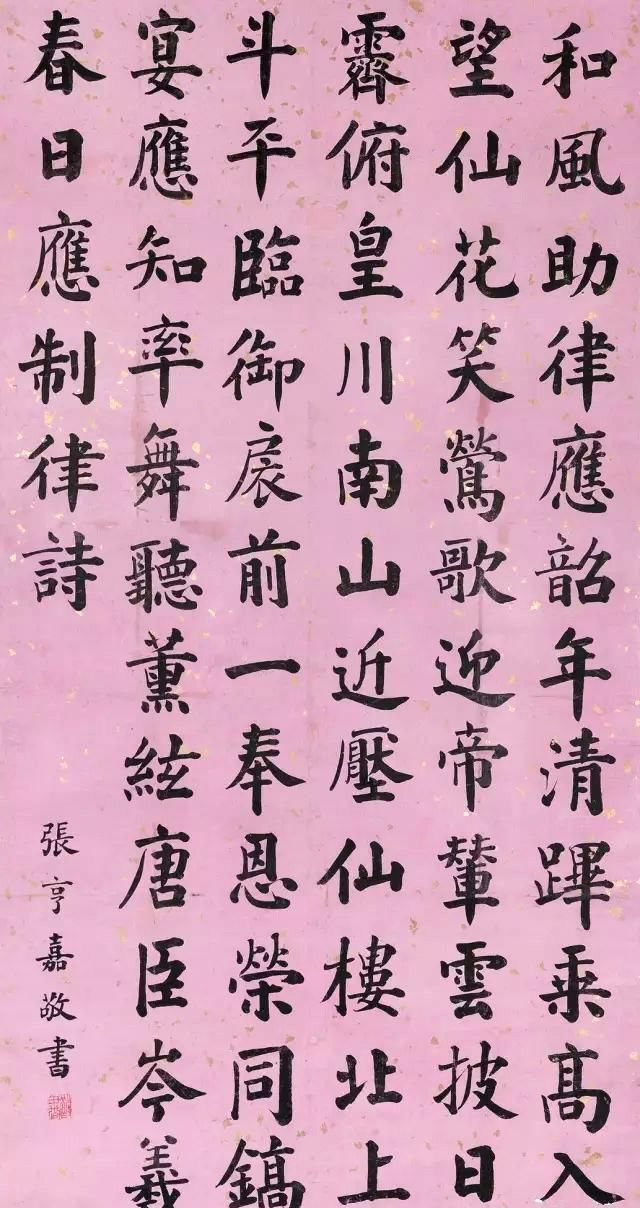 和風助律應韶年清蹕乘高入
望仙花笑鶯歌迎帝輦雲披日
霽俯皇川南山近壓仙樓北上
斗平臨御扆前一奉恩榮同鎬
宴應知率舞聽薰絃唐臣岑羲
春日應制律詩
張亨嘉敬書